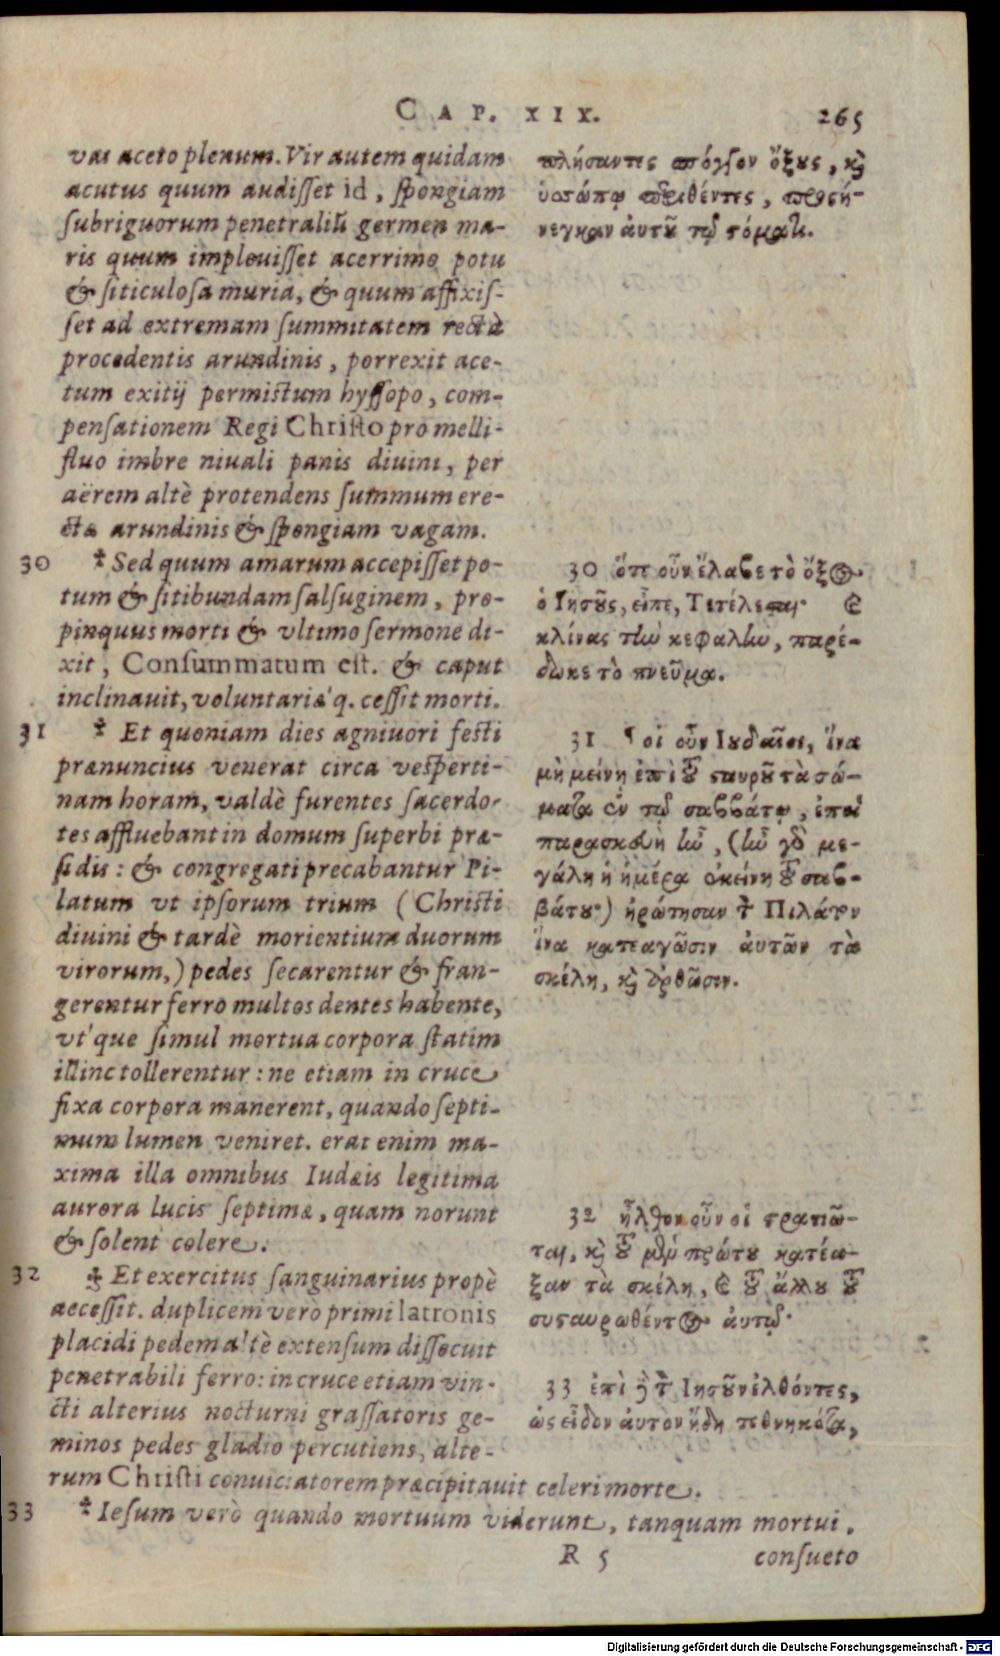 CAP. XIX.
265
uas aceto plenum. Vir autem quidam
acutus quum audisset id, spongiam
subriguorum penetraliũ germen ma-
ris quum impleuisset acerrimo potu
& siticulosa muria, & quum affixis-
set ad extremam summitatem rectà
procedentis arundinis, porrexit ace-
tum exitij permistum hyssopo, com-
pensationem Regi Christo pro melli-
fluo imbre niuali panis diuini, per
aërem altè protendens summum ere-
ctæ arundinis & spongiam vagam.
30 Sed quum amarum accepisset po-
tum & sitibundam salsuginem, pro-
pinquus morti & vltimo sermone di-
xit, Consummatum est. & caput
inclinauit, voluntariæ'q. cessit morti.
31 Et quoniam dies agniuori festi
prænuncius venerat circa vesperti-
nam horam, valdè furentes sacerdo-
tes affluebant in domum superbi præ-
sidis: & congregati precabantur Pi-
latum vt ipsorum trium (Christi
diuini & tardè morientium duorum
virorum,) pedes secarentur & fran-
gerentur ferro multos dentes habente,
vt'que simul mortua corpora statim
illinc tollerentur: ne etiam in cruce
fixa corpora manerent, quando septi-
mum lumen veniret. erat enim ma-
xima illa omnibus Iudæis legitima
aurora lucis septimæ, quam norunt
& solent colere.
32 Et exercitus sanguinarius propè
accessit. duplicem verò primi latronis
placidi pedem altè extensum dissecuit
penetrabili ferro: in cruce etiam vin-
cti alterius nocturni grassatoris ge-
minos pedes gladio percutiens, alte-
rum Christi conuiciatorem præcipitauit celeri morte.
33 Iesum verò quando mortuum viderunt, tanquam mortui
πλήσαντες σπόγγον ὄξους, καὶ
ὑσσώπῳ περιθέντες, προσή-
νεγκαν αὐτοῦ τῷ στόματι.
30 ὅτε οὖν ἔλαβε τὸ ὄξος
ὁ Ἰησοῦς, εἶπε, Τετέλεσται· καὶ
κλίνας τὴν κεφαλὴν, παρέ-
δωκε τὸ πνεῦμα.
31 ¶ οἱ οὖν Ἰουδαῖοι, ἵνα
μὴ μείνῃ ἐπὶ τοῦ σταυροῦ τὰ σώ-
ματα ἐν τῷ σαββάτῳ, ἐπεὶ
παρασκευὴ ἦν, (ἦν γὰρ με-
γάλη ἡ ἡμέρα ἐκείνη τοῦ σαβ-
βάτου·) ἠρώτησαν τὸν Πιλάτον
ἵνα κατεαγῶσιν αὐτῶν τὰ
σκέλη, καὶ ἀρθῶσιν.
32 ἦλθον οὖν οἱ στρατιῶ-
ται, καὶ τοῦ μὲν πρώτου κατέα-
ξαν τὰ σκέλη, καὶ τοῦ ἄλλου τοῦ
συσταυρωθέντος αὐτῷ·
33 ἐπὶ δὲ τὸν Ἰησοῦν ἐλθόντες,
ὡς εἶδον αὐτὸν ἤδη τεθνηκότα,
R 5
consueto
Digitalisierung gefördert durch die Deutsche Forschungsgemeinschaft - DFG